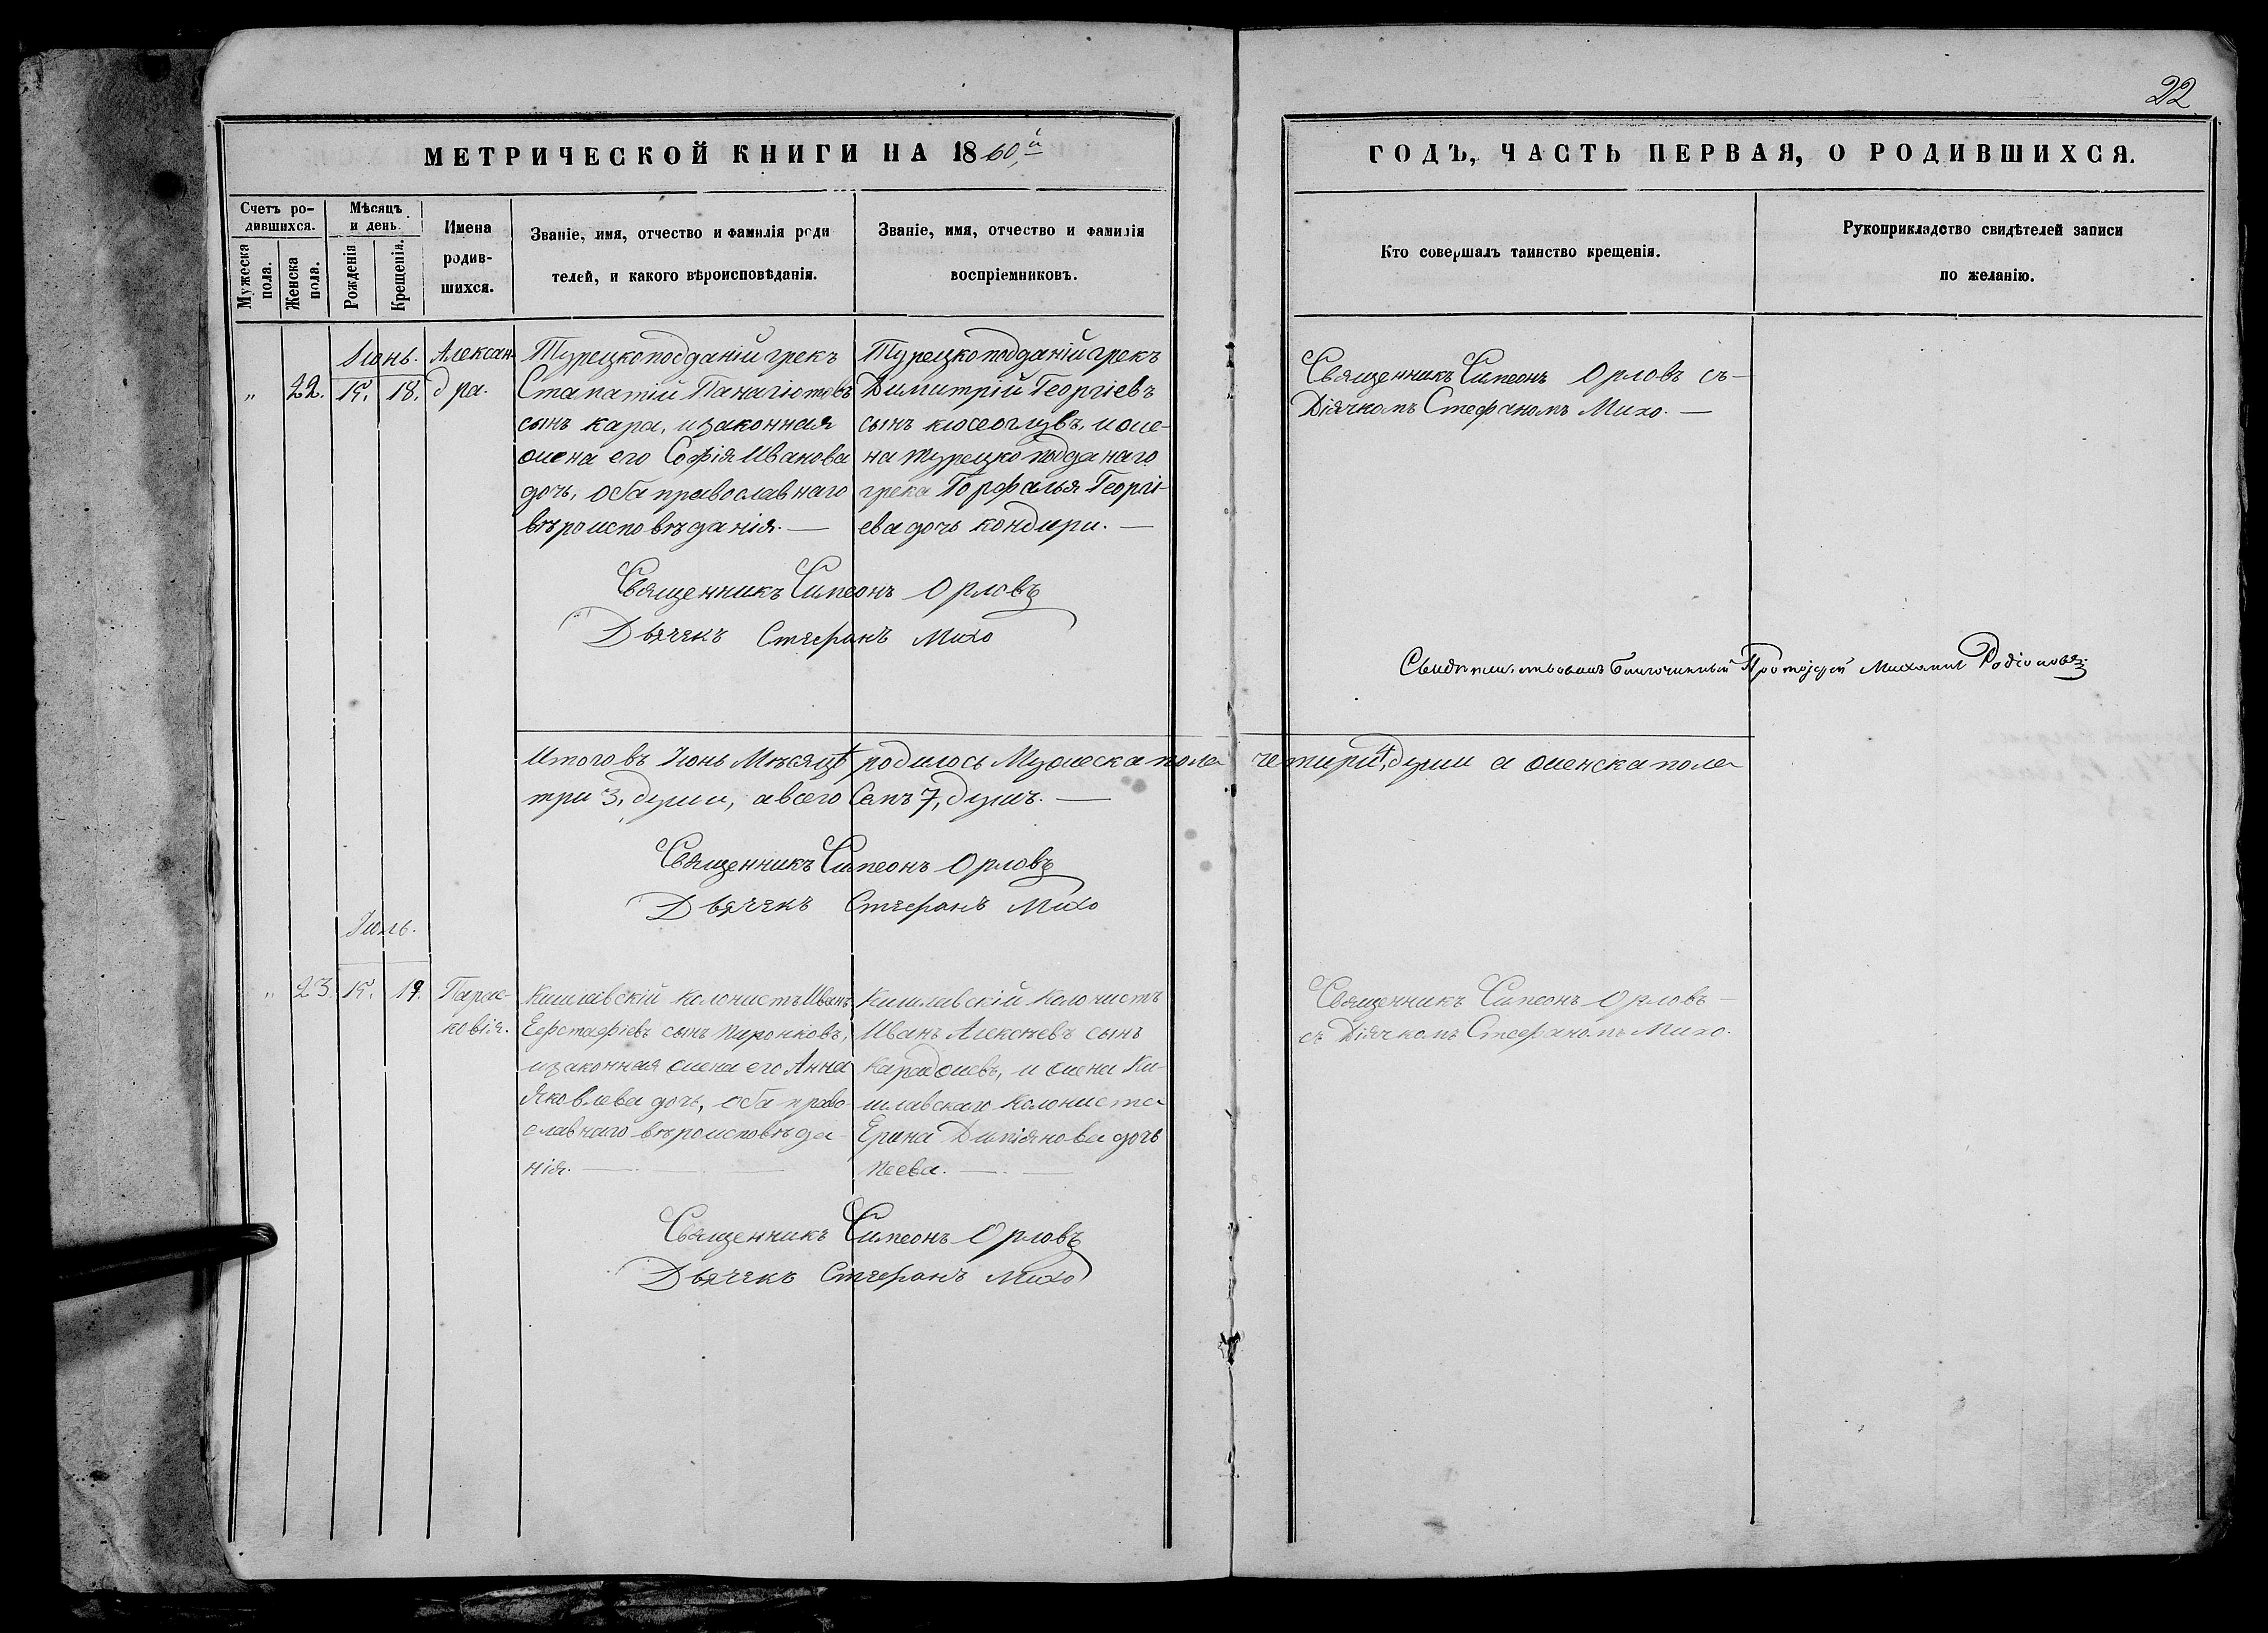 22
МЕТРИЧЕСКОЙ КНИГИ НА 1860,й
ГОДЪ, ЧАСТЬ ПЕРВАЯ, О РОДИВШИХСЯ.
Счетъ ро-
дившихся.
Мужеска
пола.
Женска
пола.
Мѣсяцъ
и день.
Рожденія
Крещенія.
Имена
родив-
шихся.
Званіе, имя, отчество и фамилія роди
телей, и какого вѣроисповѣданія.
Званіе, имя, отчество и фамилія
воспріемниковъ.
Кто совершалъ таинство крещенія.
Рукоприкладство свидѣтелей записи
по желанію.
Іюнь.
" 22. 15. 18.
Алексан-
дра.
Турецкоподданій грекъ
Стаматій Панагіотовъ
сынъ кара, и законная
жена его Софія Иванова
дочь, оба православнаго
вѣроисповѣданія. —
Турецкоподданій грекъ
Димитрій Георгіевъ
сынъ кюсеоглувъ, и же-
на турецко подданаго
грека Горфалья Георгі-
ева дочь кондири. —
Священникъ Симеонъ Орловъ съ -
Діячкомъ Стефаномъ Михо. —
Священникъ Симеонъ Орловъ
Дьячекъ Стефанъ Михо
Свидѣтельствовалъ Благочинный Протоіерей Михаилъ Родіоновъ
Итого въ Іюнь Мѣсяцѣ родилось Мужеска пола четири 4, души а женска пола
три 3, души, а всего Семь 7, душъ. —
Священникъ Симеонъ Орловъ
Дьячекъ Стефанъ Михо
Іюль.
" 23. 15. 19.
Парас-
ковія.
Кишлавскій колонистъ Иванъ
Ефстафіевъ сынъ пиронковъ,
и законная жена его Анна
Яковлева дочь, оба право-
славнаго вѣроисповѣда-
нія. —
Кишлавскій Колонистъ
Иванъ Алексѣевъ сынъ
Караджевъ, и жена Ки-
шлавскаго Колониста
Ерина Димянова дочь
пеева. —
Священникъ Симеонъ Орловъ —
съ Діячкомъ Стефаномъ Михо.
Священникъ Симеонъ Орловъ
Дьячекъ Стефанъ Михо